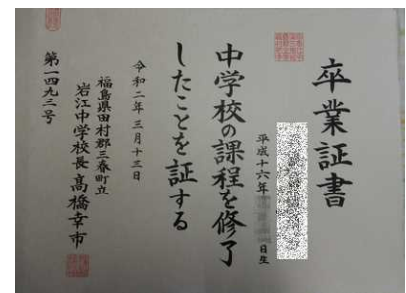 卒業証書
平成十六年
日生
中学校の課程を修了
したことを証する
令和二年三月十三日
福島県田村郡三春町立
岩江中学校長 髙橋幸市
第一四九三号